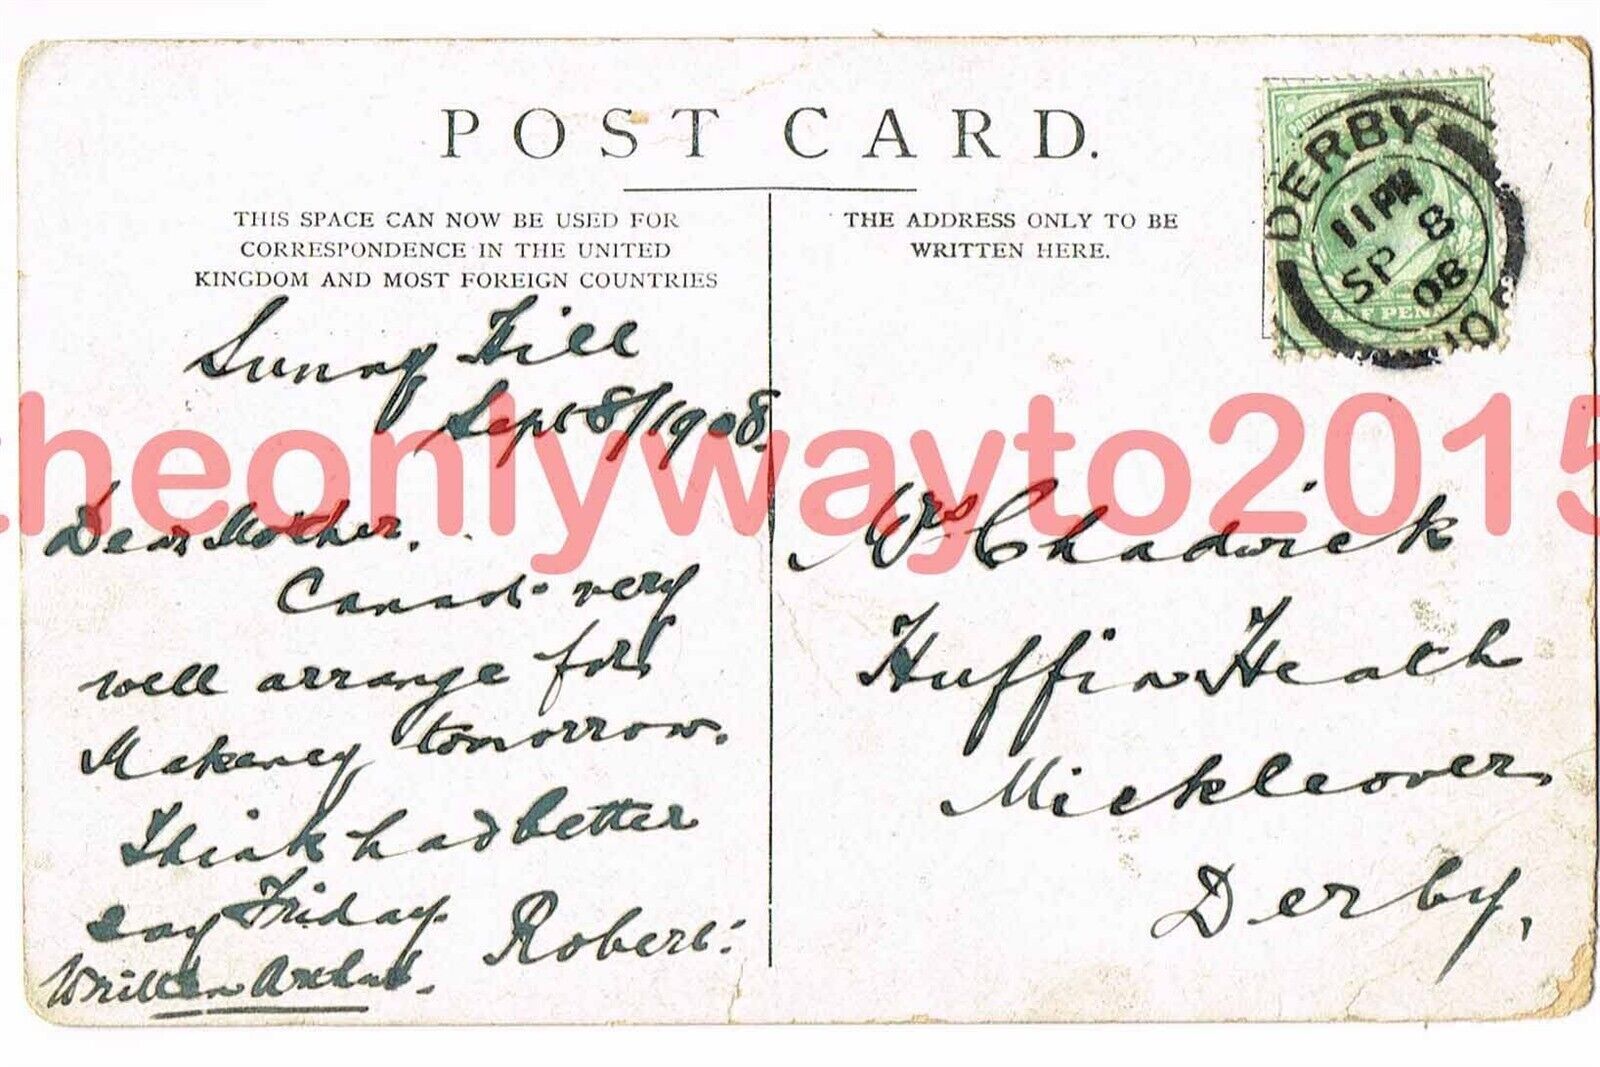 POST CARD.
THIS SPACE CAN NOW BE USED FOR
CORRESPONDENCE IN THE UNITED
KINGDOM AND MOST FOREIGN COUNTRIES
THE ADDRESS ONLY TO BE
WRITTEN HERE.
DERBY
11 PM
SP 8
08
HALF PENNY
Sunny Hill
Sept 8/1908.
theonlywayto2015
Dear Mother.
Cannot very
well arrange for
Makeney tomorrow.
Think had better
say Friday.
Robert.
Written Arthur.
Mrs Chadwick
Huffin Heath
Mickleover,
Derby,